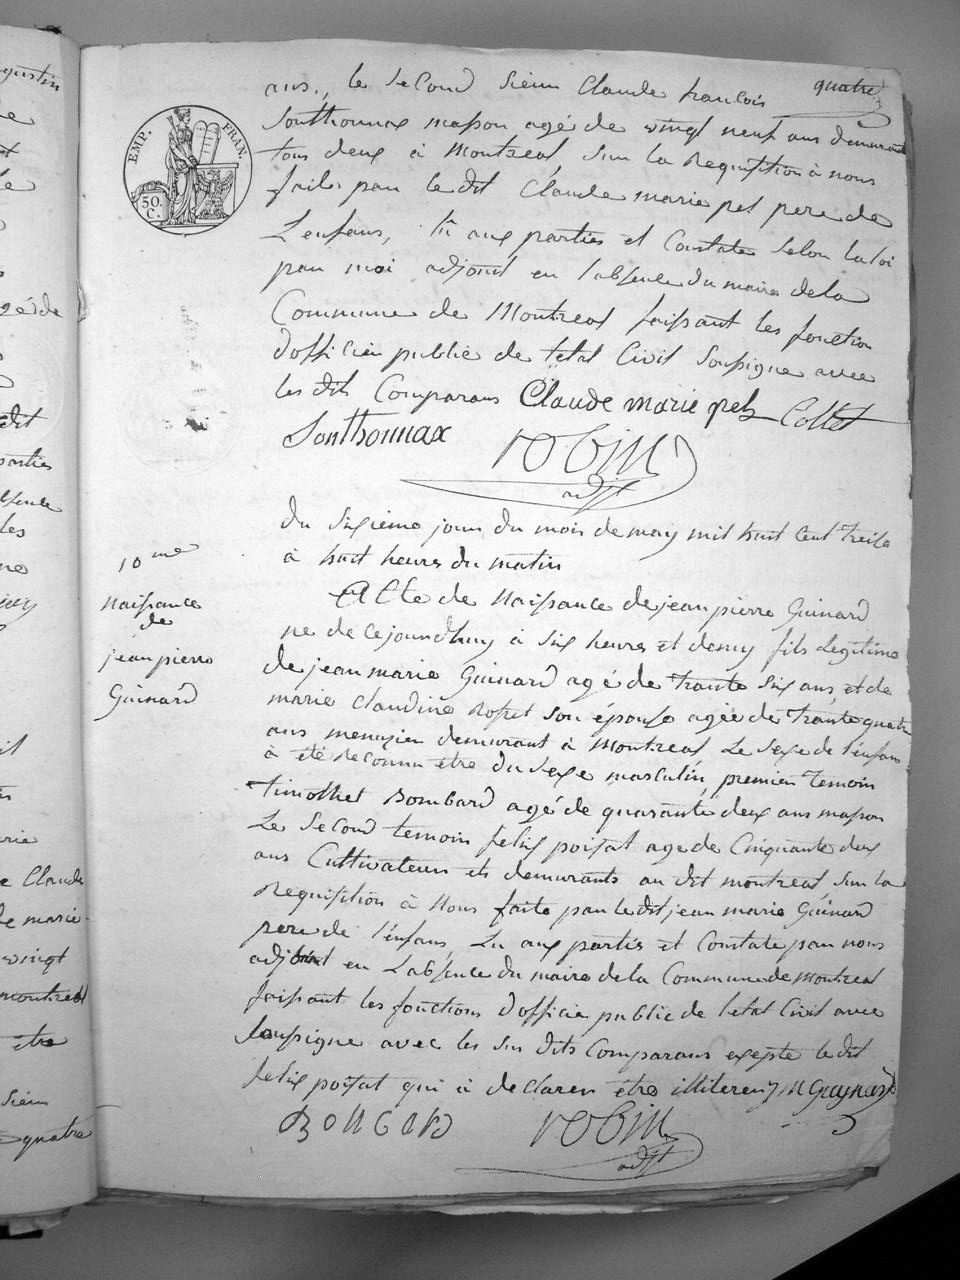 quatre
ans., le Second Sieur Claude francois
Sonthonnax masson agé de vingt neuf ans demurant
tous deux à Montreal, sur la Requisition à nous
faite par le dit Claude marie pel pere de
L'enfans, lû aux parties et Constate selon la loi
par moi adjoint en l'absence du maire de la
Commune de Montreal faissant les fonction
d'officier public de l'etat Civil Soussigne avec
les dit Comparans Claude marie pel Collet
Sonthonnax robin
adjt
EMP. FRAN.
50. C.
10 me
naissance
de
jean pierre
Guinard
du sixieme jour du mois de may mil huit Cent treise
à huit heures du matin
Acte de Naissance de jean pierre Guinard
ne de ce jourdhuy à six heures et demy fils legitime
de jean marie Guinard agé de trante six ans, et de
marie Claudine Rosset son épouse agée de trante quatre
ans menuzien demurant à Montreal Le sexe de l'enfans
à été reconnu etre du sexe masculin, premier temoin
timothet Bombard agé de quarante deux ans masson
Le Second temoin felix poisat age de Cinquante deux
ans Cultivateurs et demurants au dit montreal, sur la
Requisition à Nous faite par le dit jean marie Guinard
pere de l'enfans, Lu aux partis et Constate par nous
adjoint en L'absence du maire de la Commune de Montreal
faissant les fonctions d'officie public de l'etat Civil avec
soussigne avec les sus dits Comparans exepte le dit
felix poisat qui à declarer etre illiteren J M Guynard
BONGARD robin
adjt